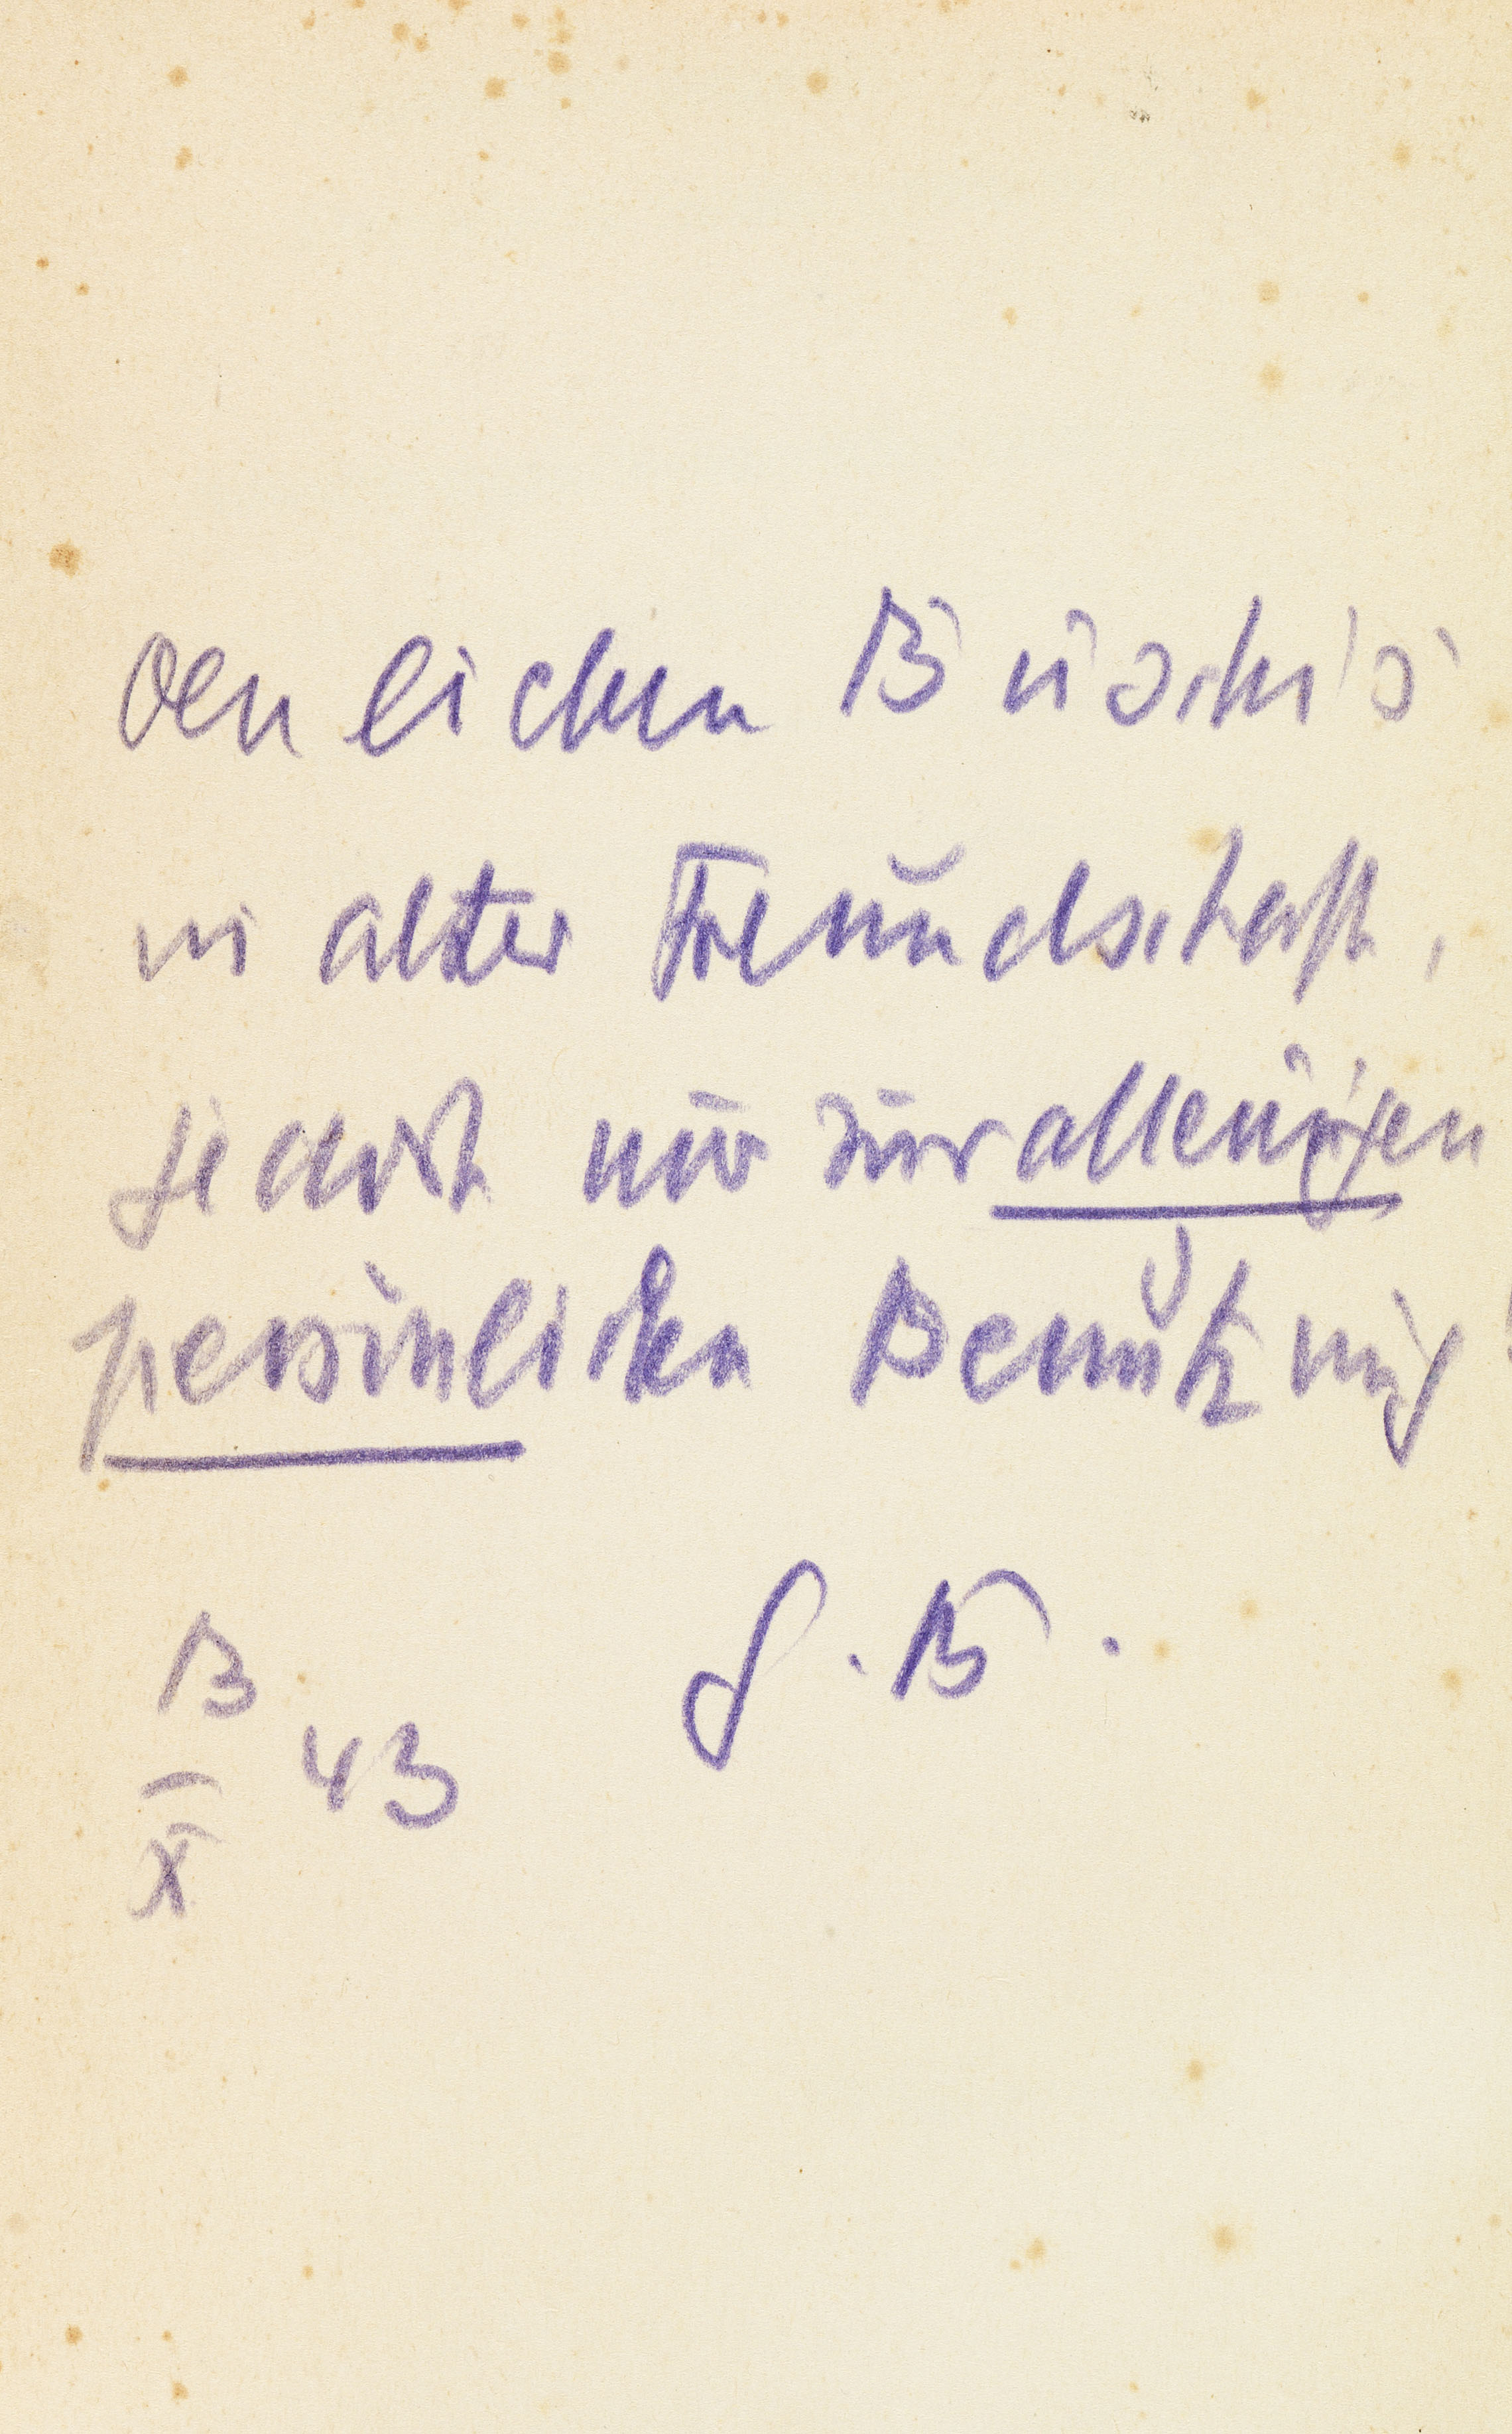 den lieben Büschi's
in alter Freundschaft,
jedoch nur zur alleinigen
persönlichen Benützung!
G. B.
B
X 43